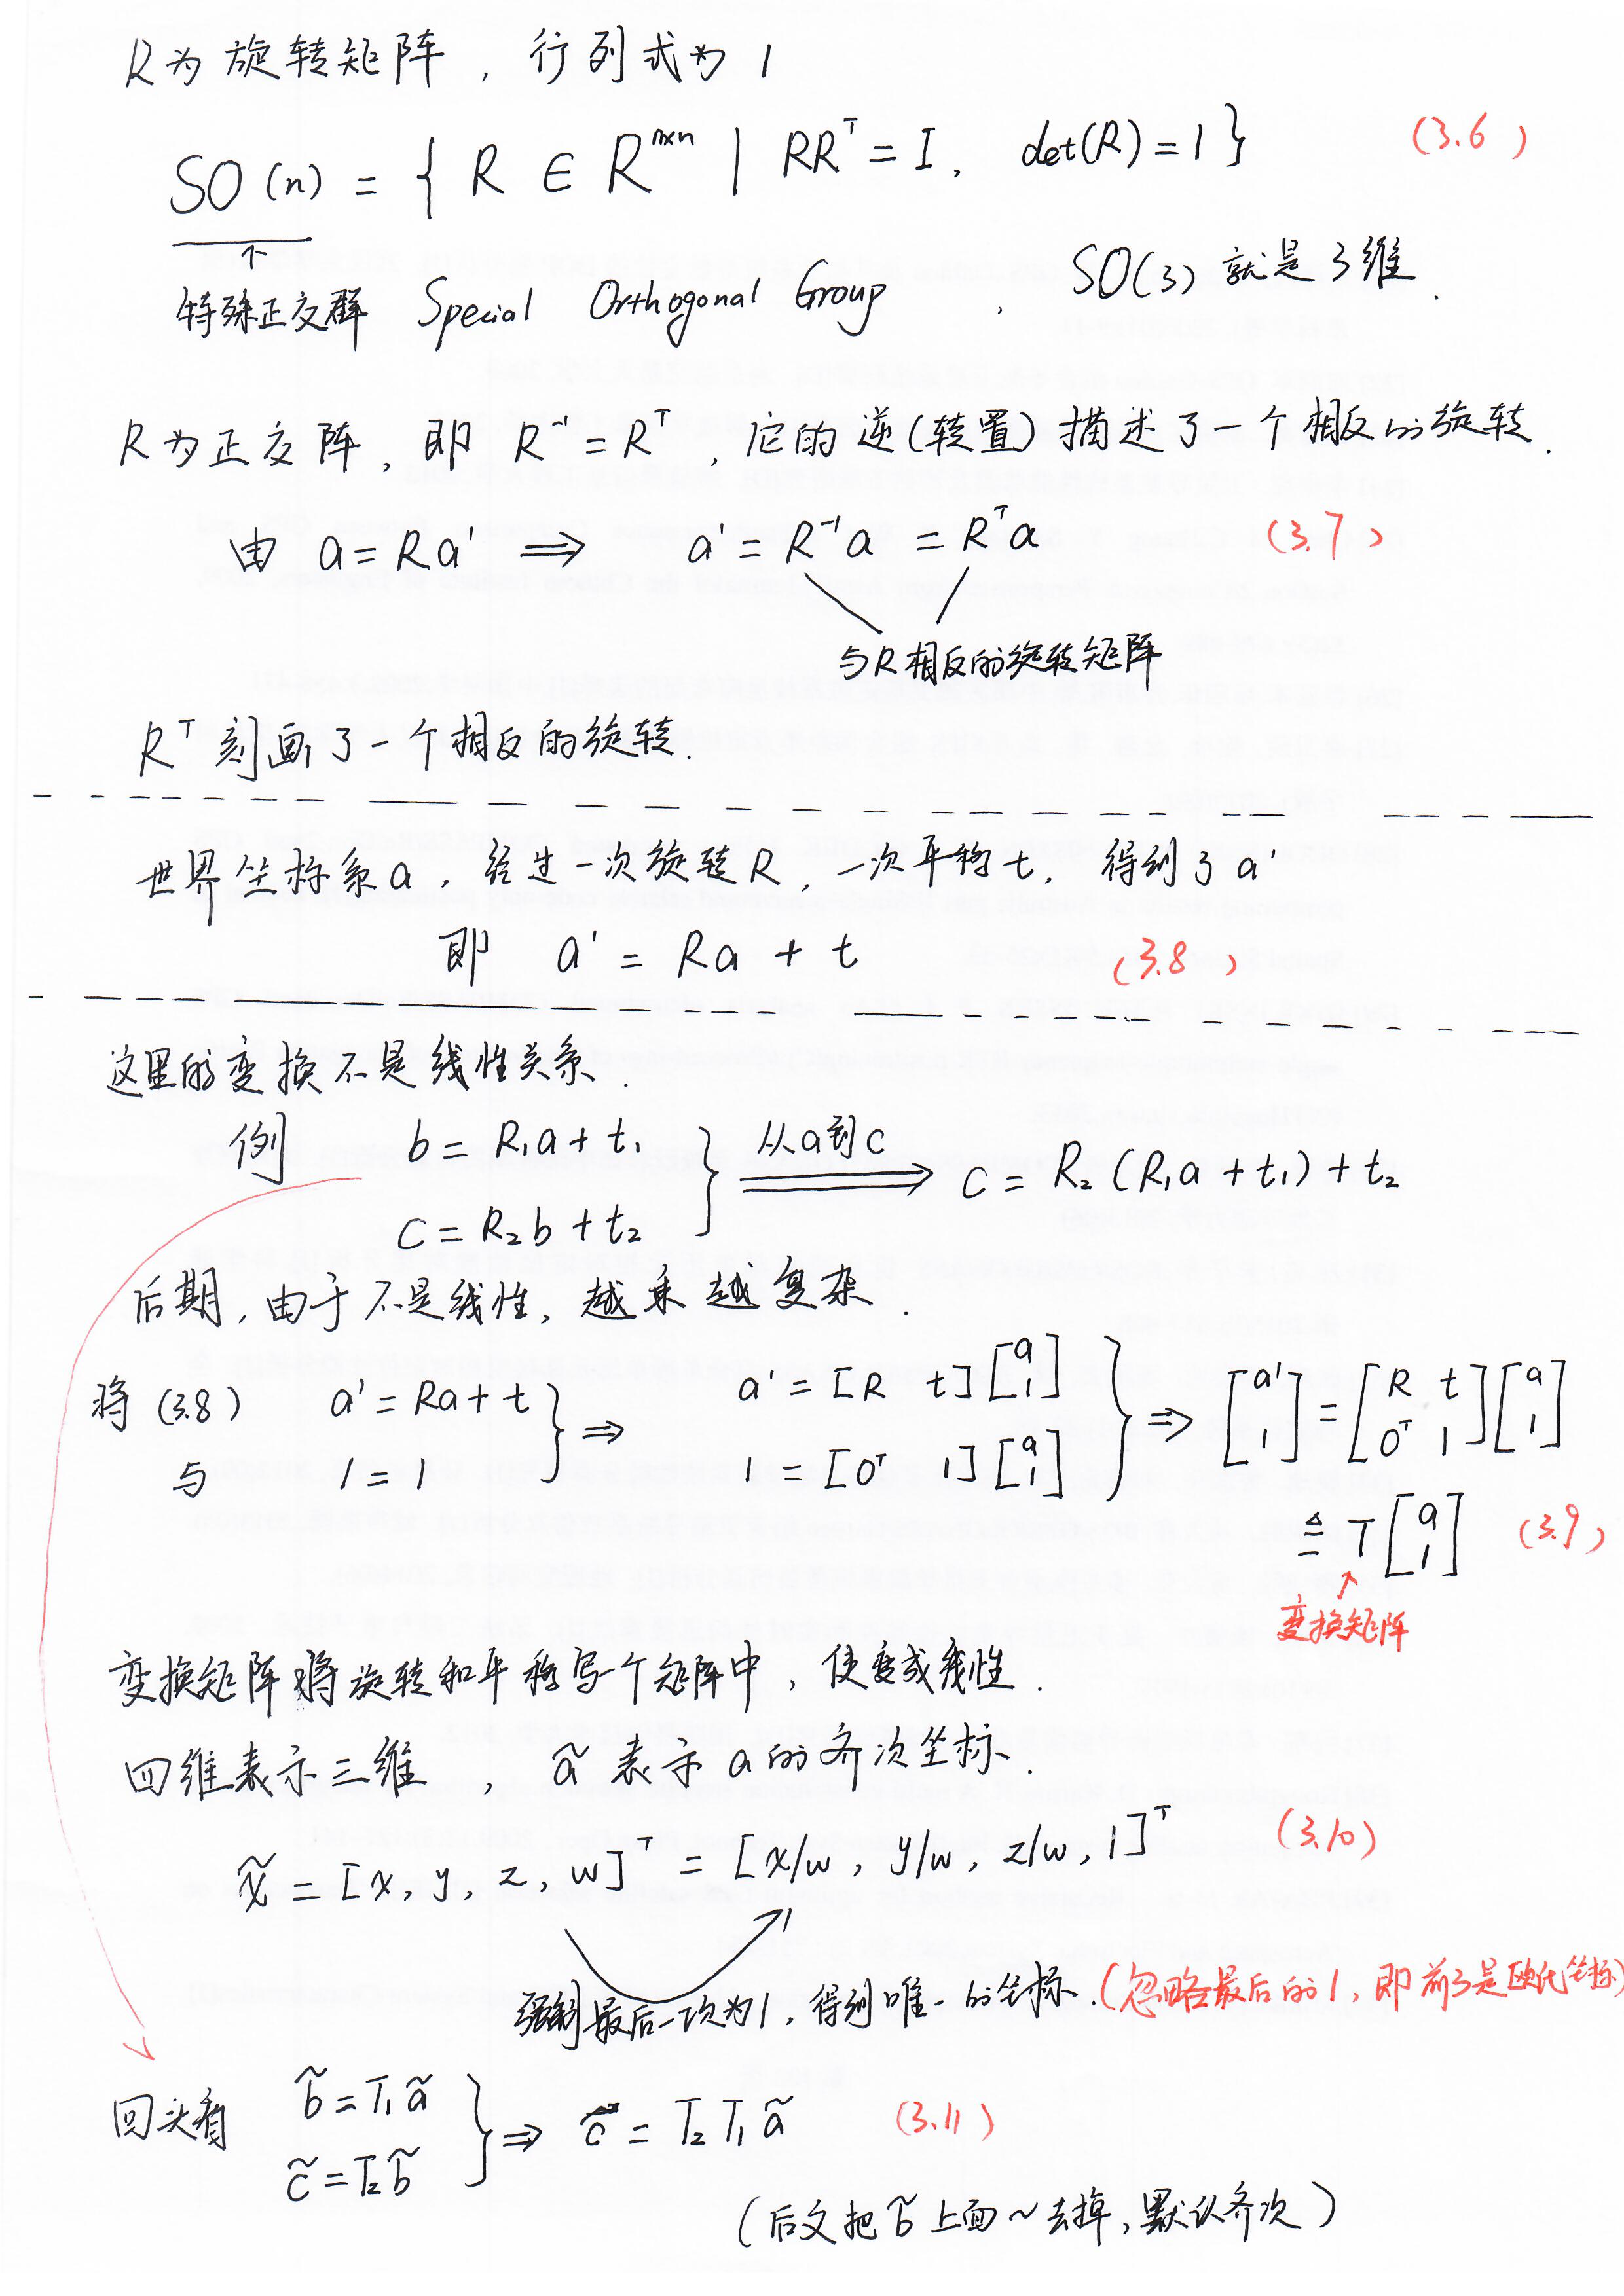 R为旋转矩阵，行列式为1
SO(n) = { R ∈ R^{n×n} | RR^T = I, det(R) = 1 } (3.6)
↑
特殊正交群 Special Orthogonal Group , SO(3) 就是3维.
R为正交阵, 即 R^{-1} = R^T , 它的逆(转置)描述了一个相反的旋转.
由 a = Ra' ⟹ a' = R^{-1}a = R^T a (3.7)
与R相反的旋转矩阵
R^T 刻画了一个相反的旋转.
世界坐标系a, 经过一次旋转R, 一次平移t, 得到了a'
即 a' = Ra + t (3.8)
这里的变换不是线性关系.
例 b = R₁a + t₁
c = R₂b + t₂ } 从a到c ⟹ c = R₂(R₁a + t₁) + t₂
后期, 由于不是线性, 越来越复杂.
将 (3.8) a' = Ra + t ⇒ a' = [R t][a 1] ⇒ [a' 1] = [R t 0^T 1][a 1]
与 1 = 1 1 = [0^T 1][a 1]
≜ T[a 1] (3.9)
↑
变换矩阵
变换矩阵将旋转和平移写个矩阵中, 使变成线性.
四维表示三维 , ã 表示a的齐次坐标.
x̃ = [x, y, z, w]^T = [x/w, y/w, z/w, 1]^T (3.10)
强制最后一项为1, 得到唯一的坐标. (忽略最后的1, 即前3是欧氏坐标)
回头看 b̃ = T₁ã
c̃ = T₂b̃ } ⇒ c̃ = T₂T₁ã (3.11)
(后文把b̃上面~去掉, 默认齐次)